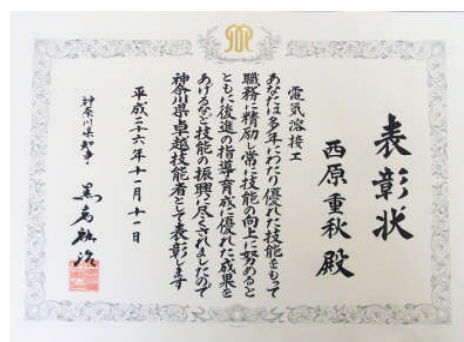 表彰状
西原重秋殿
電気溶接工
あなたは多年にわたり優れた技能をもって
職務に精励し常に技能の向上に努めると
ともに後進の指導育成に優れた成果を
あげるなど技能の振興に尽くされましたので
神奈川県卓越技能者として表彰します
平成二十六年十一月十一日
神奈川県知事
黒岩祐治